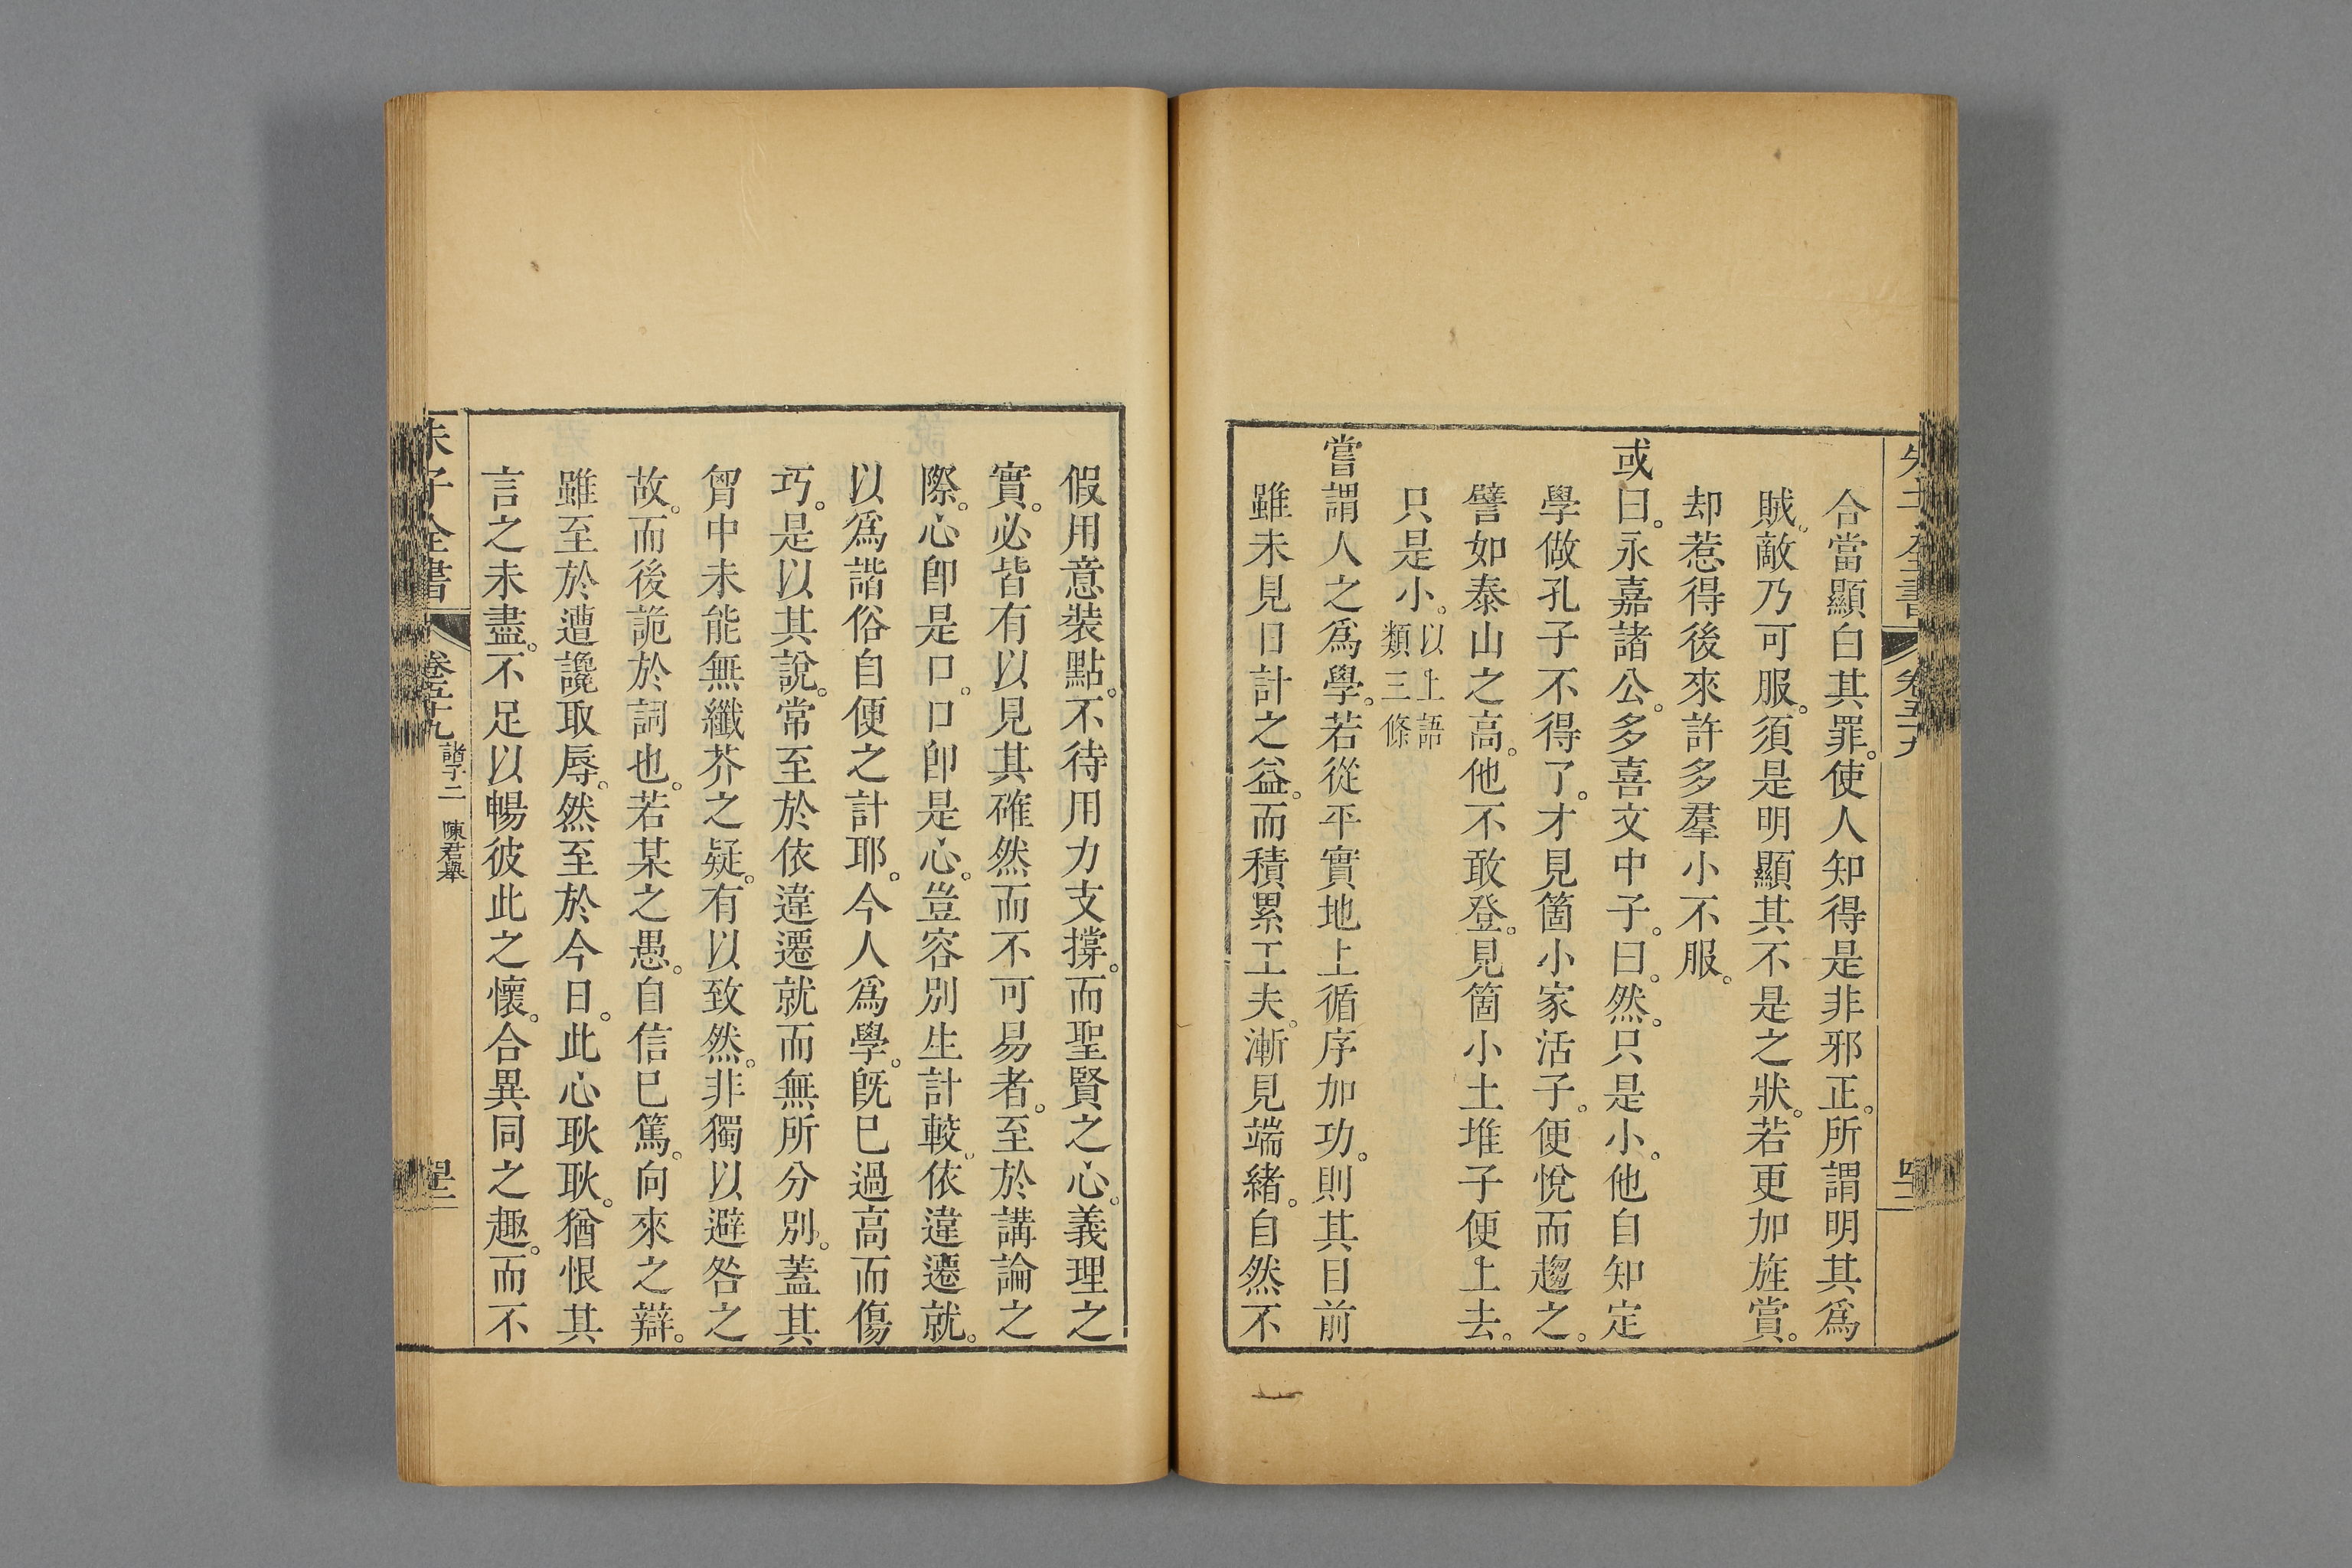 合當顯白其罪。使人知得是非邪正。所謂明其爲
賊。敵乃可服。須是明顯其不是之狀。若更加旌賞。
却惹得後來許多羣小不服。
或曰。永嘉諸公。多喜文中子。曰。然。只是小。他自知定
學做孔子不得了。才見箇小家活子。便悅而趨之。
譬如泰山之高。他不敢登。見箇小土堆子便上去。
只是小。以上語類三條
嘗謂人之爲學。若從平實地上循序加功。則其目前
雖未見日計之益。而積累工夫。漸見端緒。自然不
假用意裝點。不待用力支撐。而聖賢之心。義理之
實。必皆有以見其確然而不可易者。至於講論之
際。心卽是口。口卽是心。豈容別生計較。依違遷就。
以爲諧俗自便之計耶。今人爲學。旣已過高而傷
巧。是以其說。常至於依違遷就而無所分別。蓋其
胷中未能無纖芥之疑。有以致然。非獨以避咎之
故。而後詭於詞也。若某之愚。自信已篤。向來之辯。
雖至於遭讒取辱。然至於今日。此心耿耿。猶恨其
言之未盡。不足以暢彼此之懷。合異同之趣。而不
朱子全書
卷五十九
諸子二 陳君舉